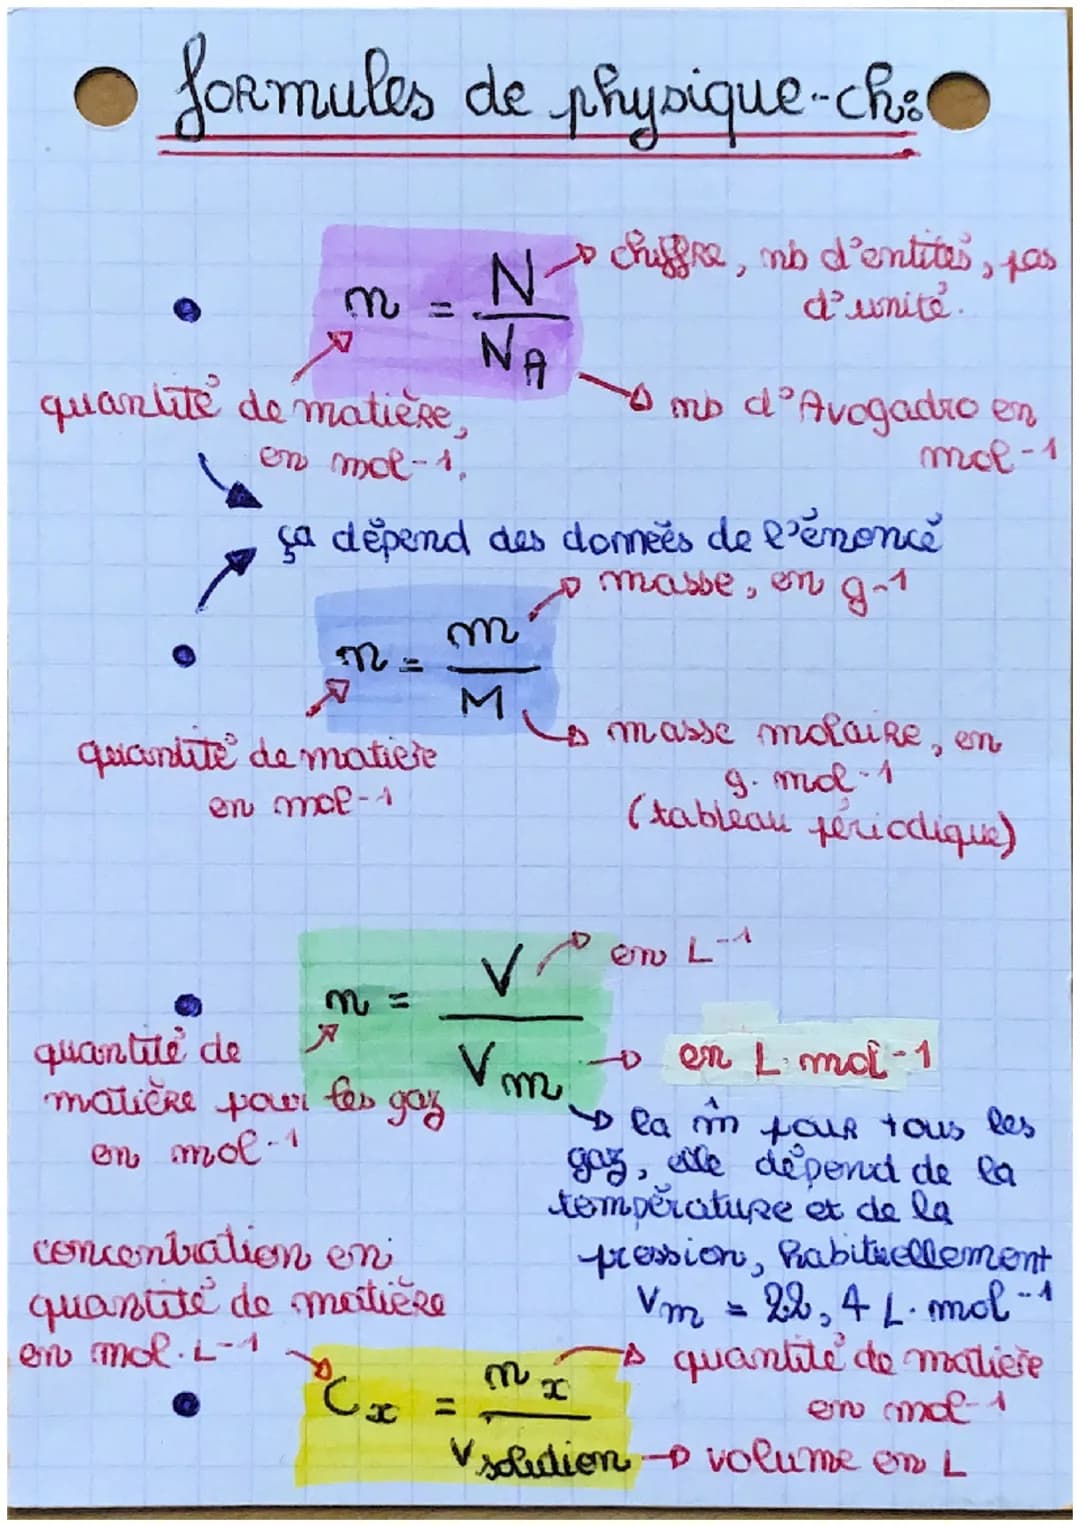 formules de physique-chi
n = N / NA
chiffre, nb d'entités, pas
d'unité.
quantité de matière,
en mol-1.
nb d'Avogadro en
mol-1
ça dépend des données de l'énoncé
masse, en g-1
n = m / M
quantité de matière
en mol-1
masse molaire, en
g. mol-1
(tableau périodique)
n = V / Vm
en L-1
quantité de
matière pour les gaz
en mol-1
en L.mol-1
la m̂ pour tous les
gaz, elle dépend de la
température et de la
pression, habituellement
Vm = 22,4 L. mol-1
concentration en
quantité de matière
en mol.L-1
Cx = nx / Vsolution
quantité de matière
en mol-1
volume en L